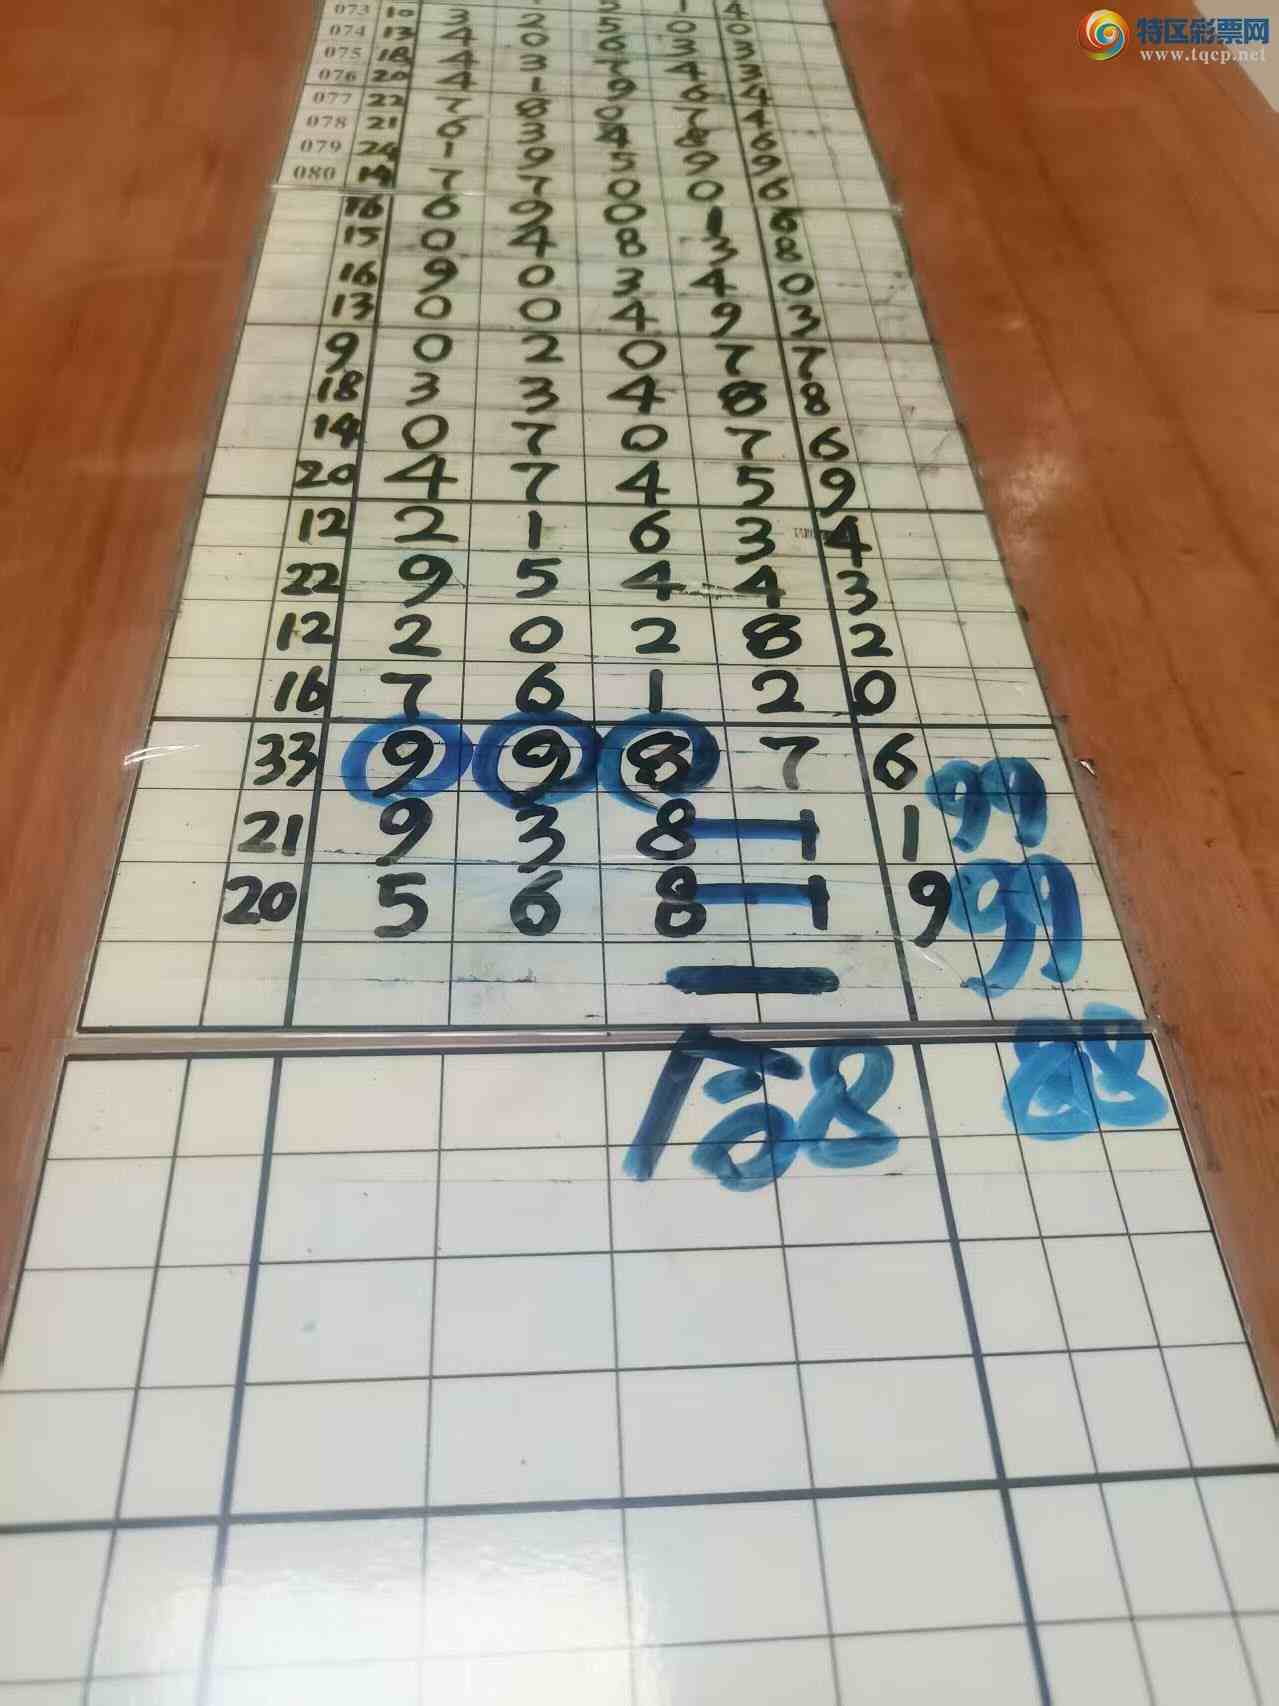 特区彩票网
www.tqcp.net
073 10 3 2 5 1 4
074 13 4 0 6 0 0
075 18 4 3 7 3 3
076 20 4 1 9 4 3
077 22 7 8 0 6 4
078 21 6 3 4 7 4
079 24 1 9 5 8 6
080 14 7 7 0 0 6
16 6 9 0 1 6
15 0 4 8 3 8
16 9 0 3 4 0
13 0 0 4 9 3
9 0 2 0 7 7
18 3 3 4 8 8
14 0 7 0 7 6
20 4 7 4 5 9
12 2 1 6 3 4
22 9 5 4 4 3
12 2 0 2 8 2
16 7 6 1 2 0
33 9 9 8 7 6
99
21 9 3 8 1 1
20 5 6 8 1 9
99
88